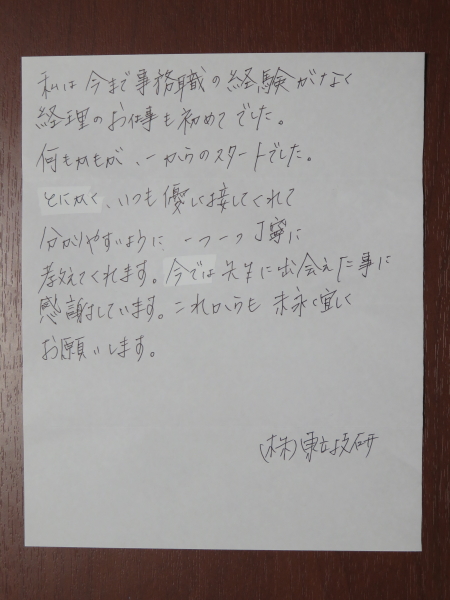 私は今まで事務職の経験がなく
経理のお仕事も初めてでした。
何もかもが、一からのスタートでした。
とにかく、いつも優しく接してくれて
分かりやすいように 一つ一つ丁寧に
教えてくれます。今では先生に出会えた事に
感謝しています。これからも 末永く宜しく
お願いします。
(株)東立技研